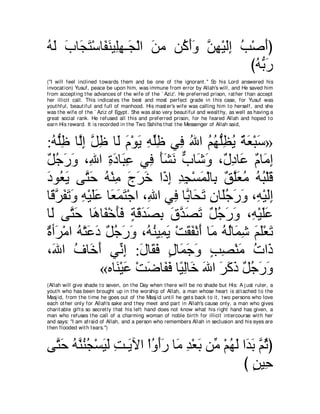 أَصْبُ إِلَيْهِنَّ وَأَكُن مِّنَ الْجَـهِلِينَفَاسْتَجَابَ لَهُ
رَبُّهُ)
("I will feel inclined towards them and be one of the ignorant." So his Lord answered his
invocation) Yusuf, peace be upon him, was immune from error by Allah's will, and He saved him
from accepting the advances of the wife of the `Aziz'. He preferred prison, rather than accept
her illicit call. This indicates the best and most perfect grade in this case, for Yusuf was
youthful, beautiful and full of manhood. His master's wife was calling him to herself, and she
was the wife of the `Aziz of Egypt. She was also very beautiful and wealthy, as well as having a
great social rank. He refused all this and preferred prison, for he feared Allah and hoped to
earn His reward. It is recorded in the Two Sahihs that the Messenger of Allah said,
«سَبْعَةٌ يُظِلُّهُمُ اللهُ فِي ظِلِّهِ يَوْمَ لَا ظِلَّ إِلَّا ظِلُّهُ:
إِمَامٌ عَادِلٌ، وَشَابٌّ نَشَأَ فِي عِبَادَةِ اللهِ، وَرَجُلٌ
قَلْبُهُ مُعَلَّقٌ بِالْمَسْجِدِ إِذَا خَرَجَ مِنْهُ حَتَّى يَعُودَ
إِلَيْهِ، وَرَجُلَانِ تَحَابَّا فِي اللهِ، اجْتَمَعَا عَلَيْهِ وَتَفَرَّقَا
عَلَيْهِ، وَرَجُلٌ تَصَدَّقَ بِصَدَقَةٍ فَأَخْفَاهَا حَتَّى لَا
تَعْلَمَ شِمَالُهُ مَا أَنْفَقَتْ يَمِينُهُ، وَرَجُلٌ دَعَتْهُ امْرَأَةٌ
ذَاتُ مَنْصِبٍ وَجَمَالٍ فَقَالَ: إِنِّي أَخَافُ اللهَ،
وَرَجُلٌ ذَكَرَ اللهَ خَالِيًا فَفَاضَتْ عَيْنَاه»
(Allah will give shade to seven, on the Day when there will be no shade but His: A just ruler, a
youth who has been brought up in the worship of Allah, a man whose heart is attached to the
Masjid, from the time he goes out of the Masjid until he gets back to it, two persons who love
each other only for Allah's sake and they meet and part in Allah's cause only, a man who gives
charitable gifts so secretly that his left hand does not know what his right hand has given, a
man who refuses the call of a charming woman of noble birth for illicit intercourse with her
and says: "I am afraid of Allah, and a person who remembers Allah in seclusion and his eyes are
then flooded with tears.")
(ثُمَّ بَدَا لَهُمْ مِّن بَعْدِ مَا رَأَوُاْ الآيَـتِ لَيَسْجُنُنَّهُ حَتَّى
حِينٍ )